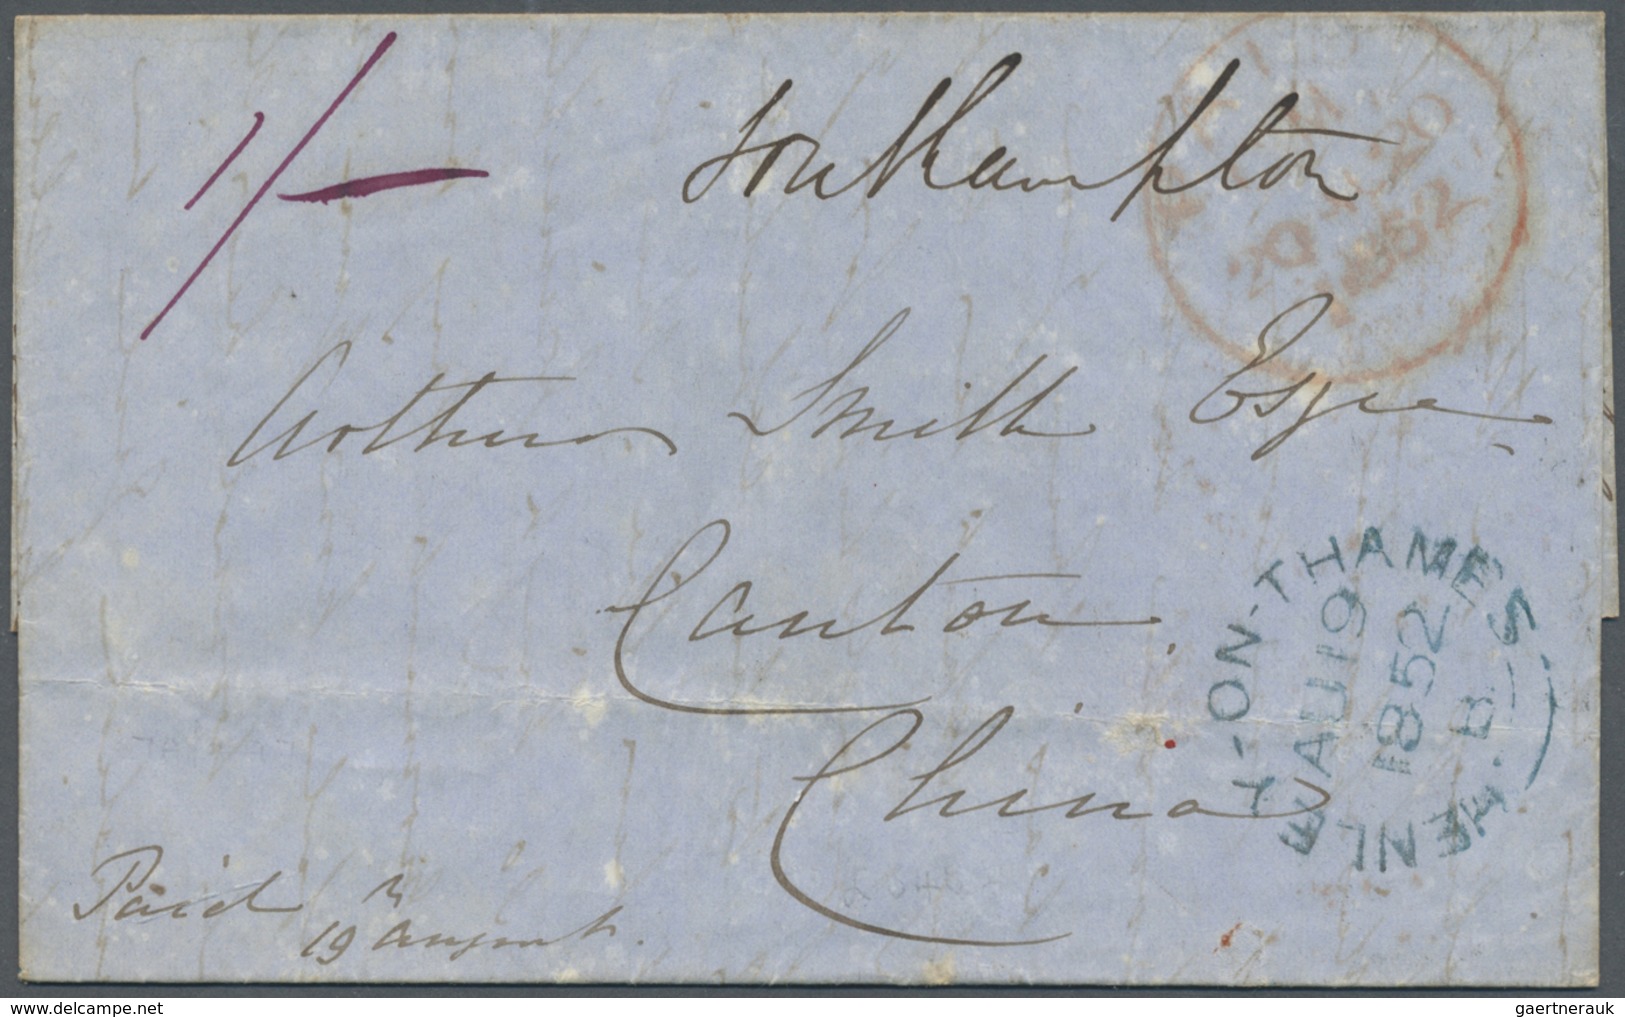 1/-
Southampton
PAID
20 AU 20
1852
Arthur Smith Esqre
Canton
China
HENLEY-ON-THAMES
AU 19
1852
B
Paid
19 August.
gaertnerauk